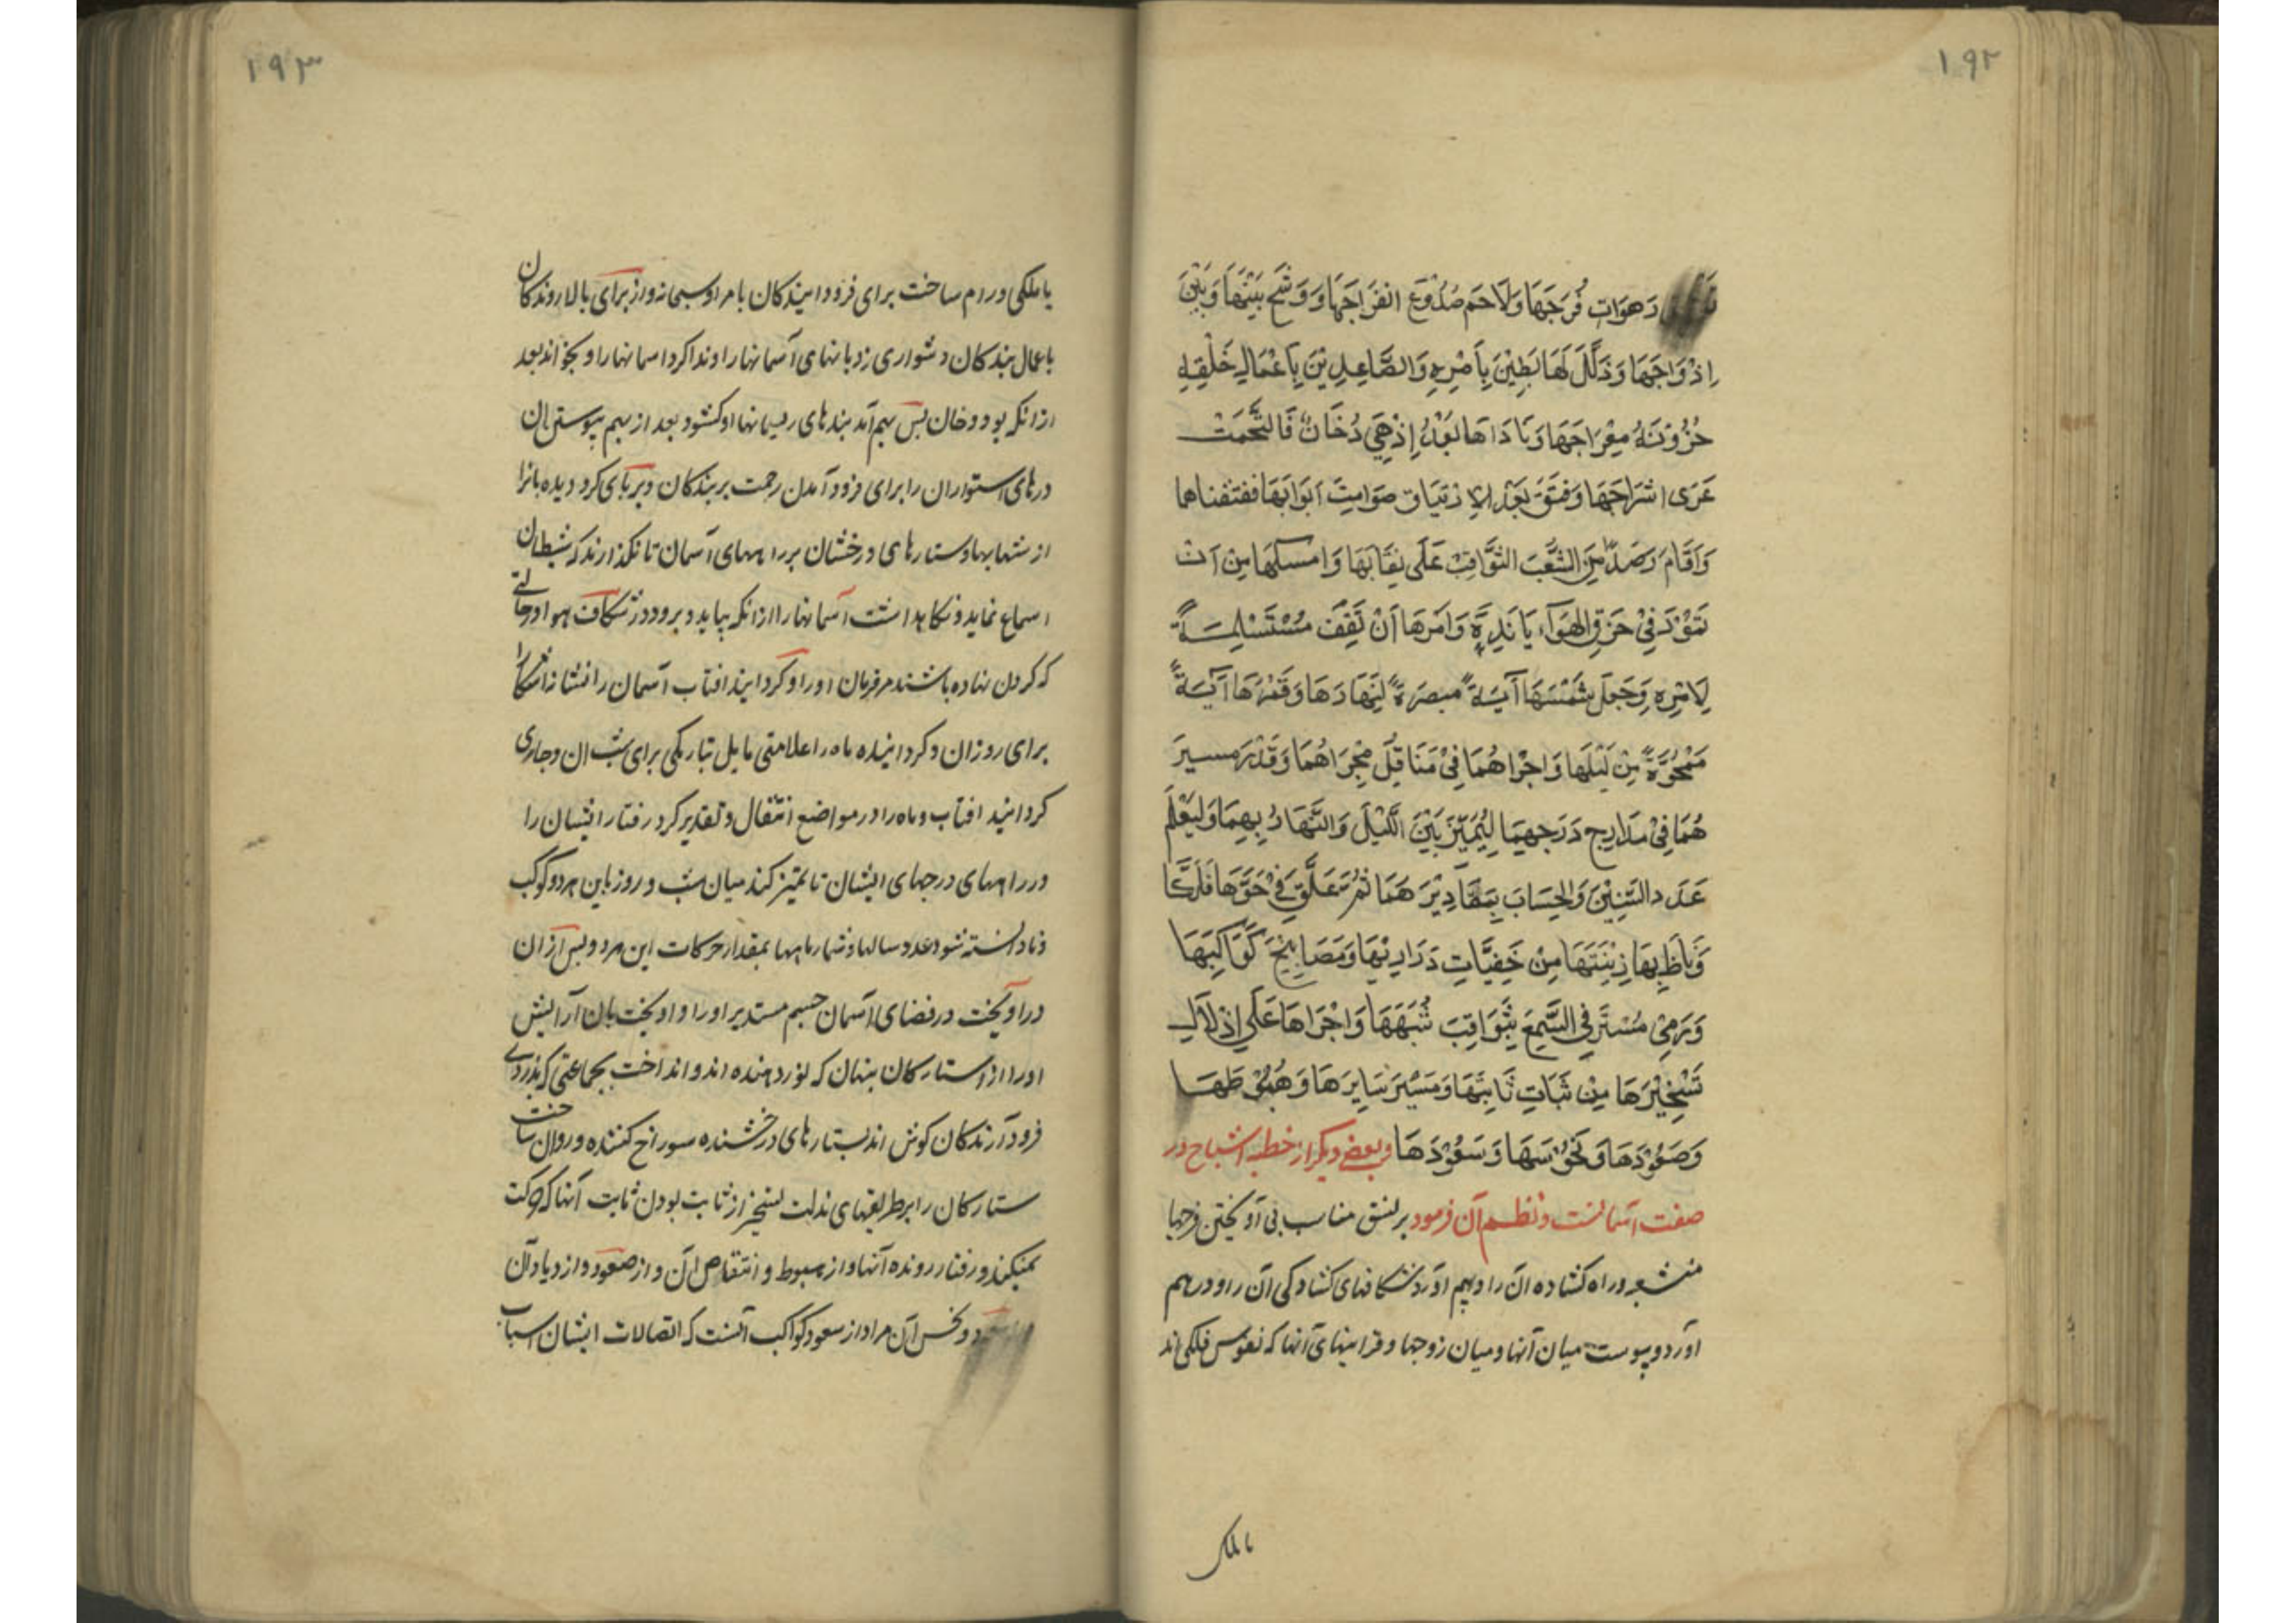 ۱۹۲
رَهَوَاتِ فُرَجَهَا وَلَاحَمَ صُدُوْعَ انفَرَاجَهَا وَوَشَّحَ بَيْنَهَا وَبَيْنَ
اِذْوَاجَهَا وَذَلَّلَ لَهَابَطِيْنَ بِاَمْرِهِ وَالصَّاعِدِيْنَ بِاَعْمَالِ خَلْقِهِ
حُزُوْنَةُ مِعْرَاجَهَا وَنَادَاهَا بَعْدُ اِذْهِيَ دُخَانٌ فَالتَحَمَتْ
عَرَى اشرَاجَهَا وَفَتَقَ بَعْدَ الاِرْتِيَاق صَوَامِتَ اَبْوَابَهَا ففتفناهما
وَاَقَامَ رَصَدًا مِنَ الشُّهُبَ الثَّوَاقِبْ عَلَى نِقَابَهَا وَامسكَهَا مِنْ اَنْ
تَمُوْرَ فِيْ خَرَقِ الهَوَآءِ يَانَدِهِ وَاَمَرَهَا اَنْ تَقِفَ مُسْتَسْلِمَةً
لِاَمْرِهِ وَجَعَلَ شَمْسَهَا آيَةً مبصرَةً لِنَهَارَهَا وَقَمْرَهَا آيَةً
مَمْحُوَّةً مِنْ لَيْلَهَا وَاجْرَاهُمَا فِيْ مَنَاقِلَ مَجْرَاهُمَا وَقَدْرَ مسيرَ
هُمَا فِيْ مَدَارِجِ دَرَجهِمَا لِيُمَيِّزَ بَيْنَ اللَّيْلَ وَالنَّهَارُ بِهِمَا وَلِيَعْلَمَ
عَدَد السِّنِيْنَ وَالحِسَابَ بِمَقَادِيْرَ هَمَا ثُمَّ عَلَّقَ فِيْ جَوِّهَا فَلَكَهَا
وَنَاطَ بِهَا زِيْنَتَهَا مِنْ خَفِيَّاتِ دَرَارِيْهَا وَمَصَابِيْحَ كَوَاكِبَهَا
وَرَمِيْ مُسْتَرِقِي السَّمِعَ بِثَوَاقِبَ شُهُبَهَا وَاجْرَاهَا عَلَى اِذْلَالِ
تَسْخِيْرَهَا مِنْ ثَبَاتِ ثَابِتَهَا وَمَسِيْرَ سَايِرَهَا وَهُبُوْطَهَا
وَصَعُوْدَهَا وَنَحُوْسَهَا وَسَعُوْدَهَا و بعضی دیگر از خطبه اشباح در
صفت آسمانست و نظم آن فرمود بر نسق مناسب بی آویختن فرجها
منشعبه و راه کشاده آن را و بهم آورد شکافهای کشادگی آن را و درهم
آورد و پیوست میان آنها و میان زوجها و قراینهای آنها که نفوس فلکی اند
با ملک
۱۹۳
یا ملکی و رام ساخت برای فرود ایندکان بامر او سبحانه و از برای بالا روندکان
باعمال بندکان دشواری نردبانهای آسمانها را و ندا کرد اسمانها را و بخواند بعد
از آنکه بود دخان پس بهم آمد بندهای ریسمانها او کشود بعد از بهم پیوستن ان
درهای استواران را برای فرود آمدن رحمت بر بندکان و برپای کرد دیده بانرا
از شهابها و ستارهای درخشان بر راههای آسمان تا نکذارند که شیطان
اسماع نماید و نکاهداشت آسمانها را از آنکه بیاید و برود در شکاف هوا و در حالتی
که کردن نهاده باشند مر فرمان او را و کردانید افتاب آسمان را نشانه آشکارا
برای روز ان و کردانیده ماه را علامتی مایل بتاریکی برای شب ان و جاری
کردانید افتاب و ماه را در مواضع انتقال و تقدیر کرد رفتار ایشان را
در راههای درجهای ایشان تا تمیز کند میان شب و روز باین هر دو کوکب
و تا دانسته شود عدد سالها و شمار ماهها بمقدار حرکات این هر دو پس از ان
در آویخت در فضای آسمان جسم مستدیر او را و اویخت بان آرایش
او را از ستارکان پنهان که نور دهنده اند و انداخت بجماعتی که بدزدی
فرود آرندکان کوش اند بستارهای درخشنده سوراخ کننده و روان ساخت
ستارکان را بر طریقهای مذلت تسخیر از ثابت بودن ثابت آنها که حرکت
نمیکنند و رفتار رونده آنها و از هبوط و انتقاص آن و از صعود و ازدیاد آن
و نحس آن مراد از سعود کواکب آنست که اتصالات ایشان اسباب